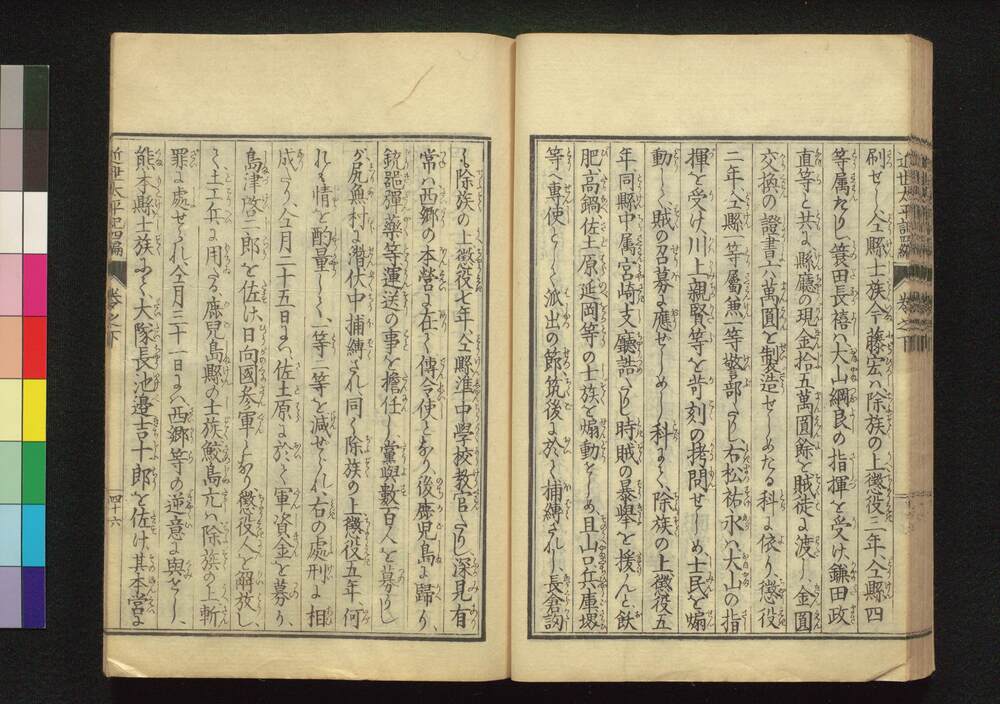 刷せし仝縣士族今藤宏ハ除族の上懲役三年、仝縣四
等属たりし簑田長禧ハ大山綱良の指揮を受け、鎌田政
直等と共に縣廳の現金拾五萬圓餘を賊徒に渡し、金圓
交換の證書六萬圓を製造せしめたる科に依り、懲役
二年、仝縣一等屬兼一等警部たりし、右松祐永ハ大山の指
揮を受け、川上親賢等を苛刻の拷問せしめ、士民を煽
動し、賊の召募に應せしめし科にて、除族の上懲役五
年、同縣中属宮崎支廳詰たりし時賊の暴擧を援んと、飫
肥高鍋佐土原延岡等の士族を煽動せしめ、且山口兵庫堺
等へ專使として派出の節、筑後に於て捕縛され、長倉訒
も除族の上懲役七年、仝縣準中學校教官たりし、深見有
常ハ西郷の本營に在て傳令使となり、後鹿児島に歸り、
銃器彈藥等運送の事を擔任し黨與數百人を募りし
が尻魚村に潜伏中捕縛され同く除族の上懲役五年、何
れも情を酌量して、一等二等を減せられ、右の處刑に相
成たり、仝月二十五日にハ佐土原に於て軍資金を募り、
島津啓二郎を佐け日向國参軍となり、懲役人を解放し
て、土工兵に用たる、鹿児島縣の士族鮫島元ハ除族の上斬
罪に處せられ、仝月三十一日にハ西郷等の逆意に與せし、
熊本縣士族にて、大隊長池邊吉十郎を佐け其本営に
近世太平記四編 巻之下 四十六